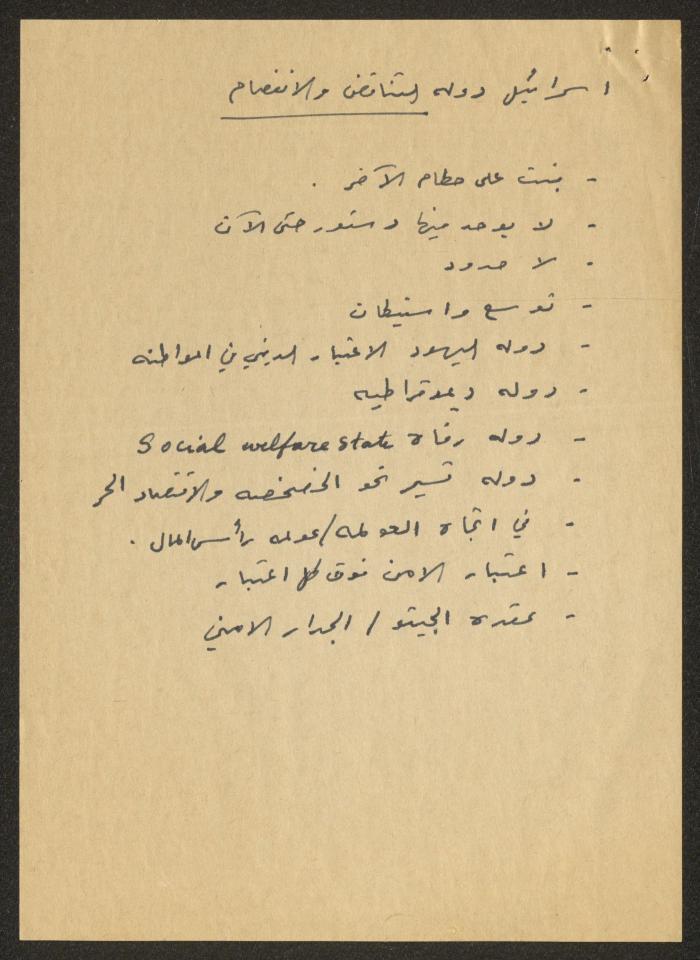 اسرائيل دوله التناقض والانفصام
- بنيت على حطام الآخر .
- لا يوجد فيها دستور حتى الآن
- لا حدود
- توسع واستيطان
- دوله اليهود الاعتبار الديني في المواطنه
- دوله ديموقراطيه
- دوله رفاه Social welfare state
- دوله تسير نحو الخصخصه والاقتصاد الحر
- في اتجاه العولمه/عولمه رأس المال .
- اعتبار الامن فوق كل اعتبار
- عقدة الجيتو / الجدار الامني